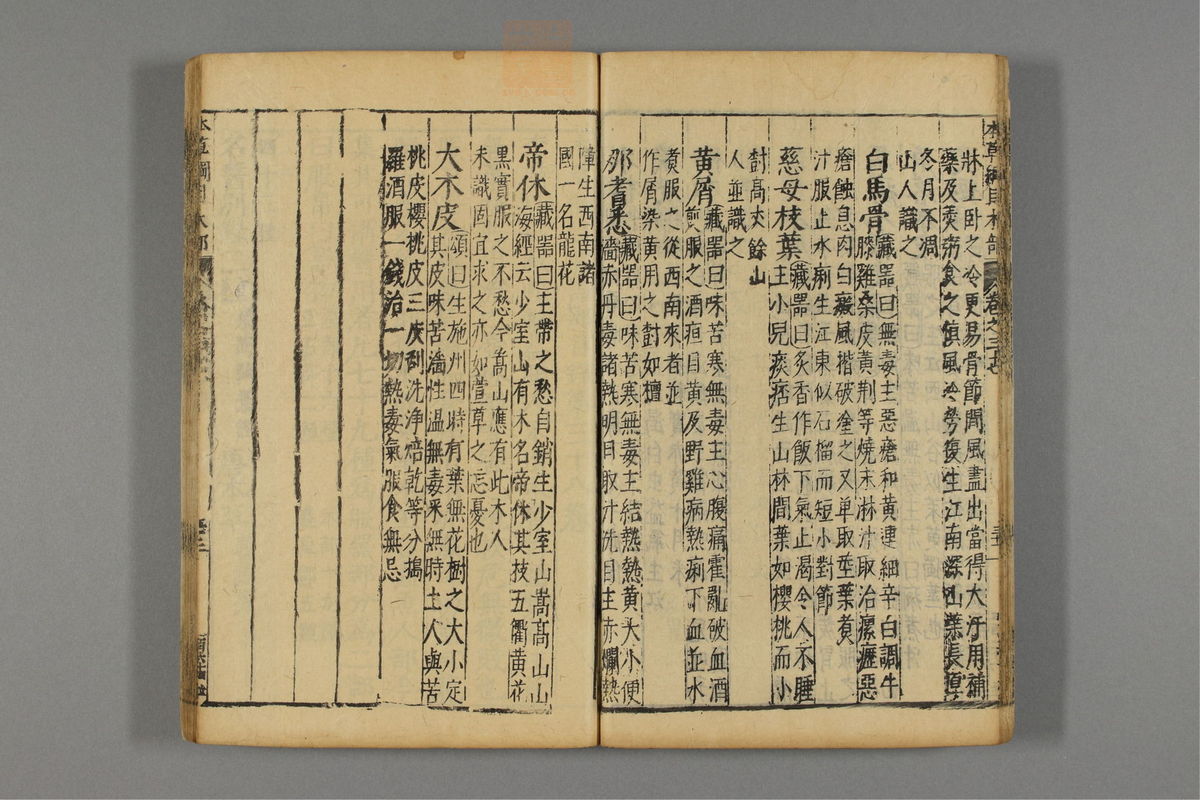 本草綱目木部 卷之三十七
牀上卧之冷更易骨節間風盡出當得大汗用補
藥及羹粥食之慎風冷勞復生江南深山葉長厚
冬月不凋
山人識之
白馬骨藏器曰無毒主惡瘡和黃連細辛白調牛
膝雞桑皮黃荆等燒末淋汁取治瘰癧惡
瘡蝕息肉白癜風揩破塗之又单取莖葉煮
汁服止水痢生江東似石榴而短小對節
慈母枝葉藏器曰炙香作飯下氣止渴令人不睡
主小兒痰痞生山林間葉如櫻桃而小
樹高丈餘山
人並識之
黃屑藏器曰味苦寒無毒主心腹痛霍亂破血酒
煎服之酒疸目黃及野雞病熱痢下血並水
煮服之從西南來者並
作屑染黃用之樹如檀
那耆悉藏器曰味苦寒無毒主結熱熱黃大小便
濇赤丹毒諸熱明目取汁洗目主赤爛熱
障生西南諸
國一名龍花
帝休藏器曰主帶之愁自銷生少室山嵩高山山
海經云少室山有木名帝休其枝五衢黃花
黑實服之不愁今嵩山應有此木人
未識固宜求之亦如萱草之忘憂也
大木皮頌曰生施州四時有葉無花樹之大小定
其皮味苦濇性温無毒采無時土人與苦
桃皮櫻桃皮三皮刮洗淨焙乾等分搗
羅酒服一錢治一切熱毒氣服食無忌